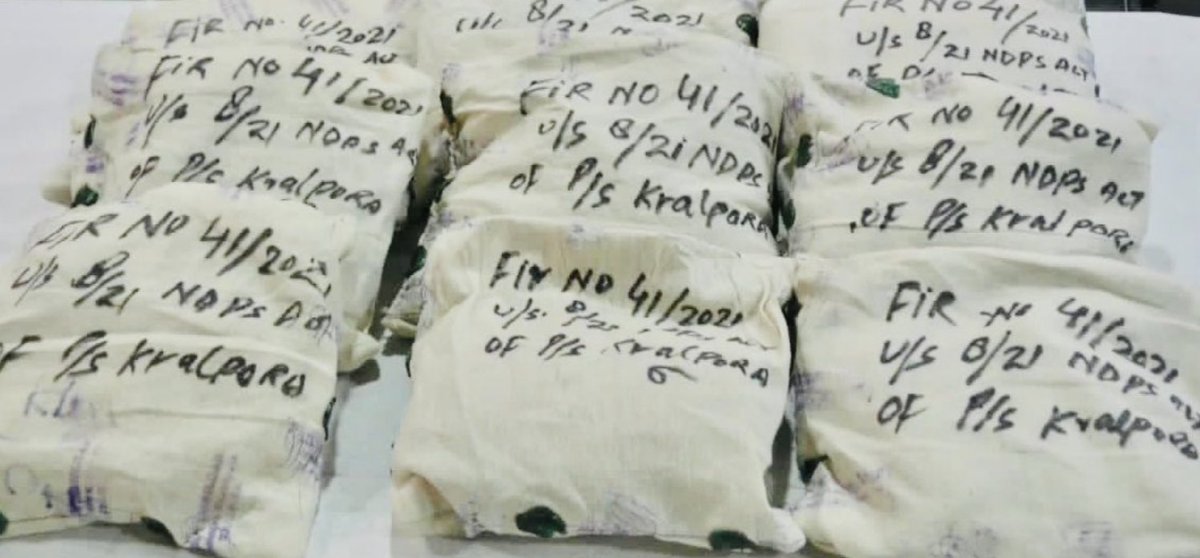 FIR NO. 41/2021
ACT
FIR NO 41/2021
U/S 8/21 NDPS Act
OF P/S Kralpora
FIR NO 41/2021
U/S 8/21 NDPS Act
OF P/S Kralpora
U/S 8/21
FIR NO 41/2021
U/S 8/21 NDPS
OF P/S Kralpora
FIR NO 41/2021
U/S. 8/21
OF P/S Kralpora
FIR NO 41/2021
U/S 8/21 NDPS ACT
OF
FIR NO 41/2021
U/S 8/21 NDPS ACT
OF P/S Kralpora
FIR NO 41/2021
U/S 8/21 NDPS Act
OF P/S Kralpora